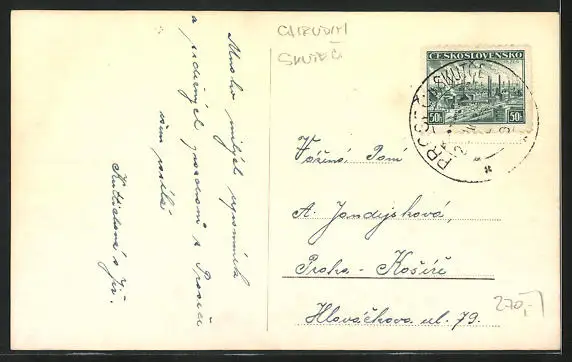 Mnoho milých vzpomínek
a srdečných pozdravů z Proseče
všem posílá
Jiř.
CHRUDIM
SKUTEČ
ČESKOSLOVENSKO
50h
50h
PROSEČ U SKUTČE
Vážená Paní
A. Jandejsková,
Praha - Košíře
Hlaváčkova ul. 79.
270,-